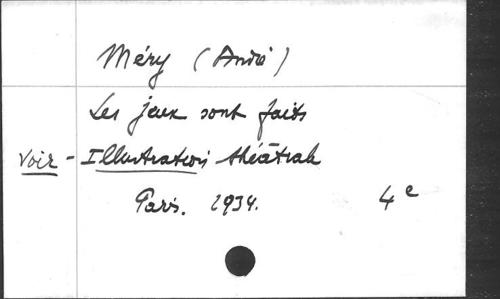 Méry (André)
Les jeux sont faits
Voir - Illustration théâtrale
Paris. 1934. 4e